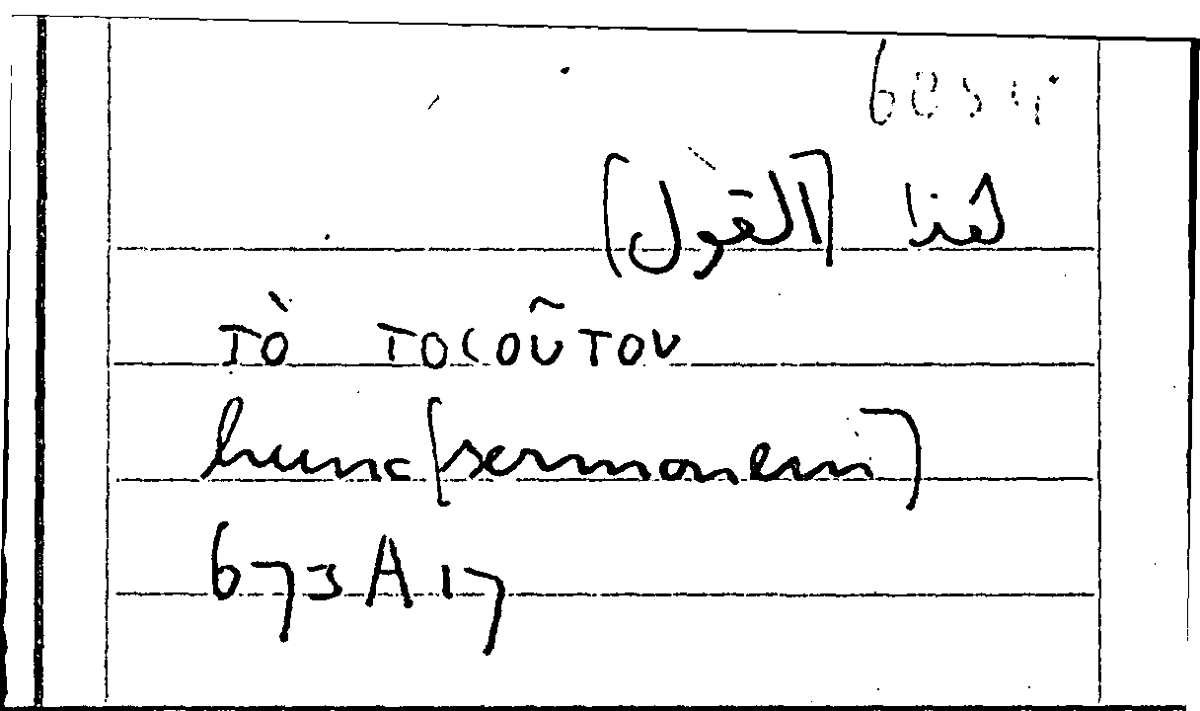 هذا [القول]
τὸ τοσοῦτον
hunc [sermonem]
673A17